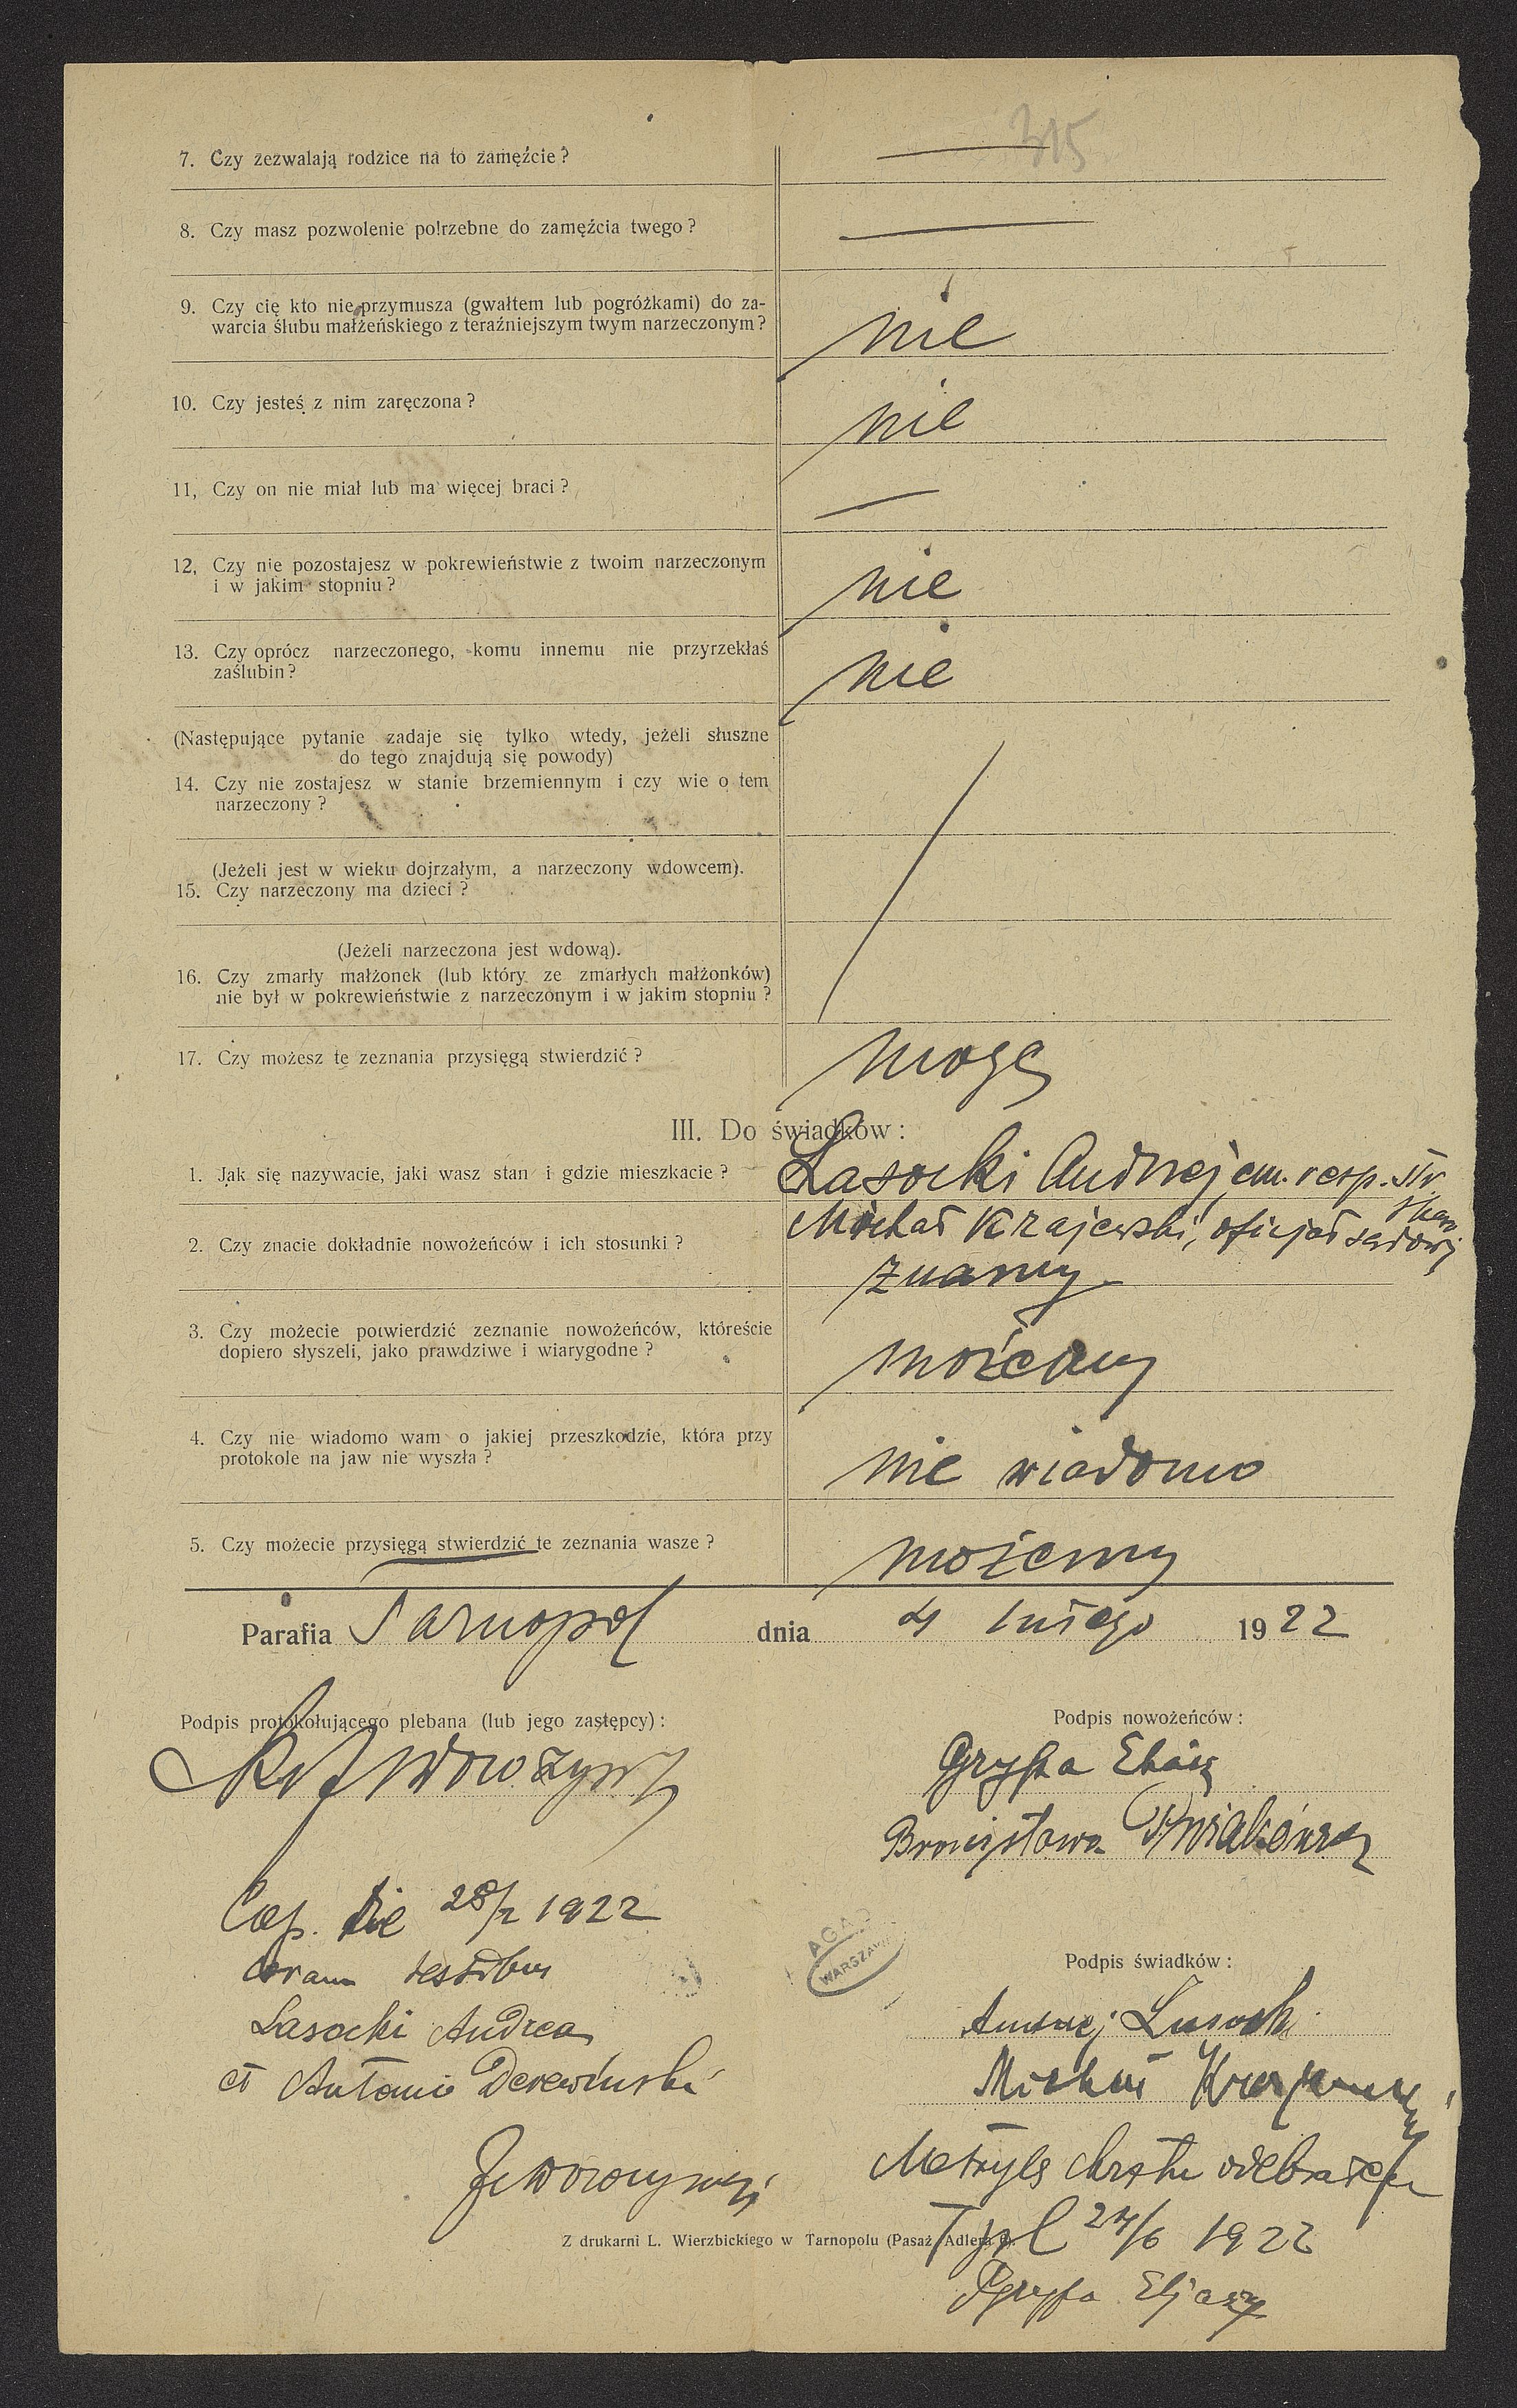 315
7. Czy zezwalają rodzice na to zamęźcie?
8. Czy masz pozwolenie potrzebne do zamęźcia twego?
9. Czy cię kto nie przymusza (gwałtem lub pogróżkami) do za-
warcia ślubu małżeńskiego z teraźniejszym twym narzeczonym?
nie
10. Czy jesteś z nim zaręczona?
nie
11, Czy on nie miał lub ma więcej braci?
12, Czy nie pozostajesz w pokrewieństwie z twoim narzeczonym
i w jakim stopniu?
nie
13. Czy oprócz narzeczonego, komu innemu nie przyrzekłaś
zaślubin?
nie
(Następujące pytanie zadaje się tylko wtedy, jeżeli słuszne
do tego znajdują się powody)
14. Czy nie zostajesz w stanie brzemiennym i czy wie o tem
narzeczony?
(Jeżeli jest w wieku dojrzałym, a narzeczony wdowcem).
15. Czy narzeczony ma dzieci?
(Jeżeli narzeczona jest wdową).
16. Czy zmarły małżonek (lub który ze zmarłych małżonków)
nie był w pokrewieństwie z narzeczonym i w jakim stopniu?
17. Czy możesz te zeznania przysięgą stwierdzić?
mogę
III. Do świadków:
1. Jak się nazywacie, jaki wasz stan i gdzie mieszkacie?
Lasocki Andrzej em. resp. str. skar.
Michał Krajewski, oficjał sądowy
2. Czy znacie dokładnie nowożeńców i ich stosunki?
znamy
3. Czy możecie potwierdzić zeznanie nowożeńców, któreście
dopiero słyszeli, jako prawdziwe i wiarygodne?
możemy
4. Czy nie wiadomo wam o jakiej przeszkodzie, która przy
protokole na jaw nie wyszła?
nie wiadomo
5. Czy możecie przysięgą stwierdzić te zeznania wasze?
możemy
Parafia Tarnopol dnia 4 lutego 1922
Podpis protokołującego plebana (lub jego zastępcy):
Podpis nowożeńców:
Gryfta Eljasz
Bronisława
Cop. die 28/2 1922
coram testibus
Lasocki Andrea
et Antonio
AGAD
WARSZAWA
Podpis świadków:
Andrzej Lasocki
Michał Krajewski
Metrykę chrztu odebrałem
Tpl 27/6 1922
Eljasz
Z drukarni L. Wierzbickiego w Tarnopolu (Pasaż Adlera 6).